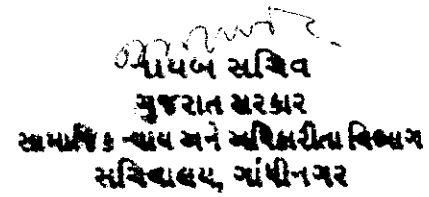 નાયબ સચિવ
ગુજરાત સરકાર
સામાજિક ન્યાય અને અધિકારીતા વિભાગ
સચિવાલય, ગાંધીનગર